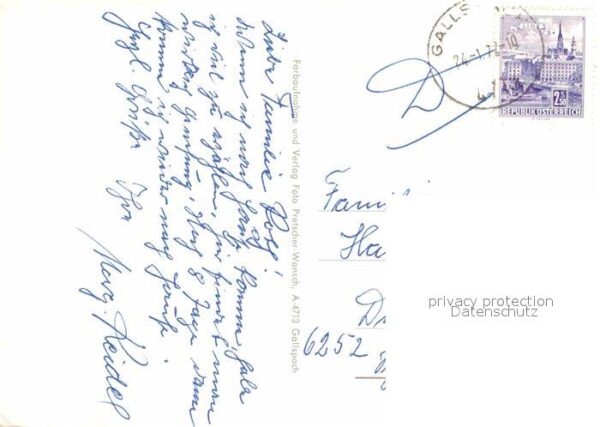 Liebe Familie
wenn ich nach komme, habe
ich viel zu erzählen, hier findet man
wirklich Genesung, noch 8 Tage dann
komme ich wieder nach
Herzl. Grüße Ihre
Marg. Keidel
Farbaufnahme und Verlag Foto Pretscher-Wonsch, A-4713 Gallspach
GALLS
24.-1.72-10
REPUBLIK ÖSTERREICH
D
Fami
Ha
D
6252
privacy protection
Datenschutz